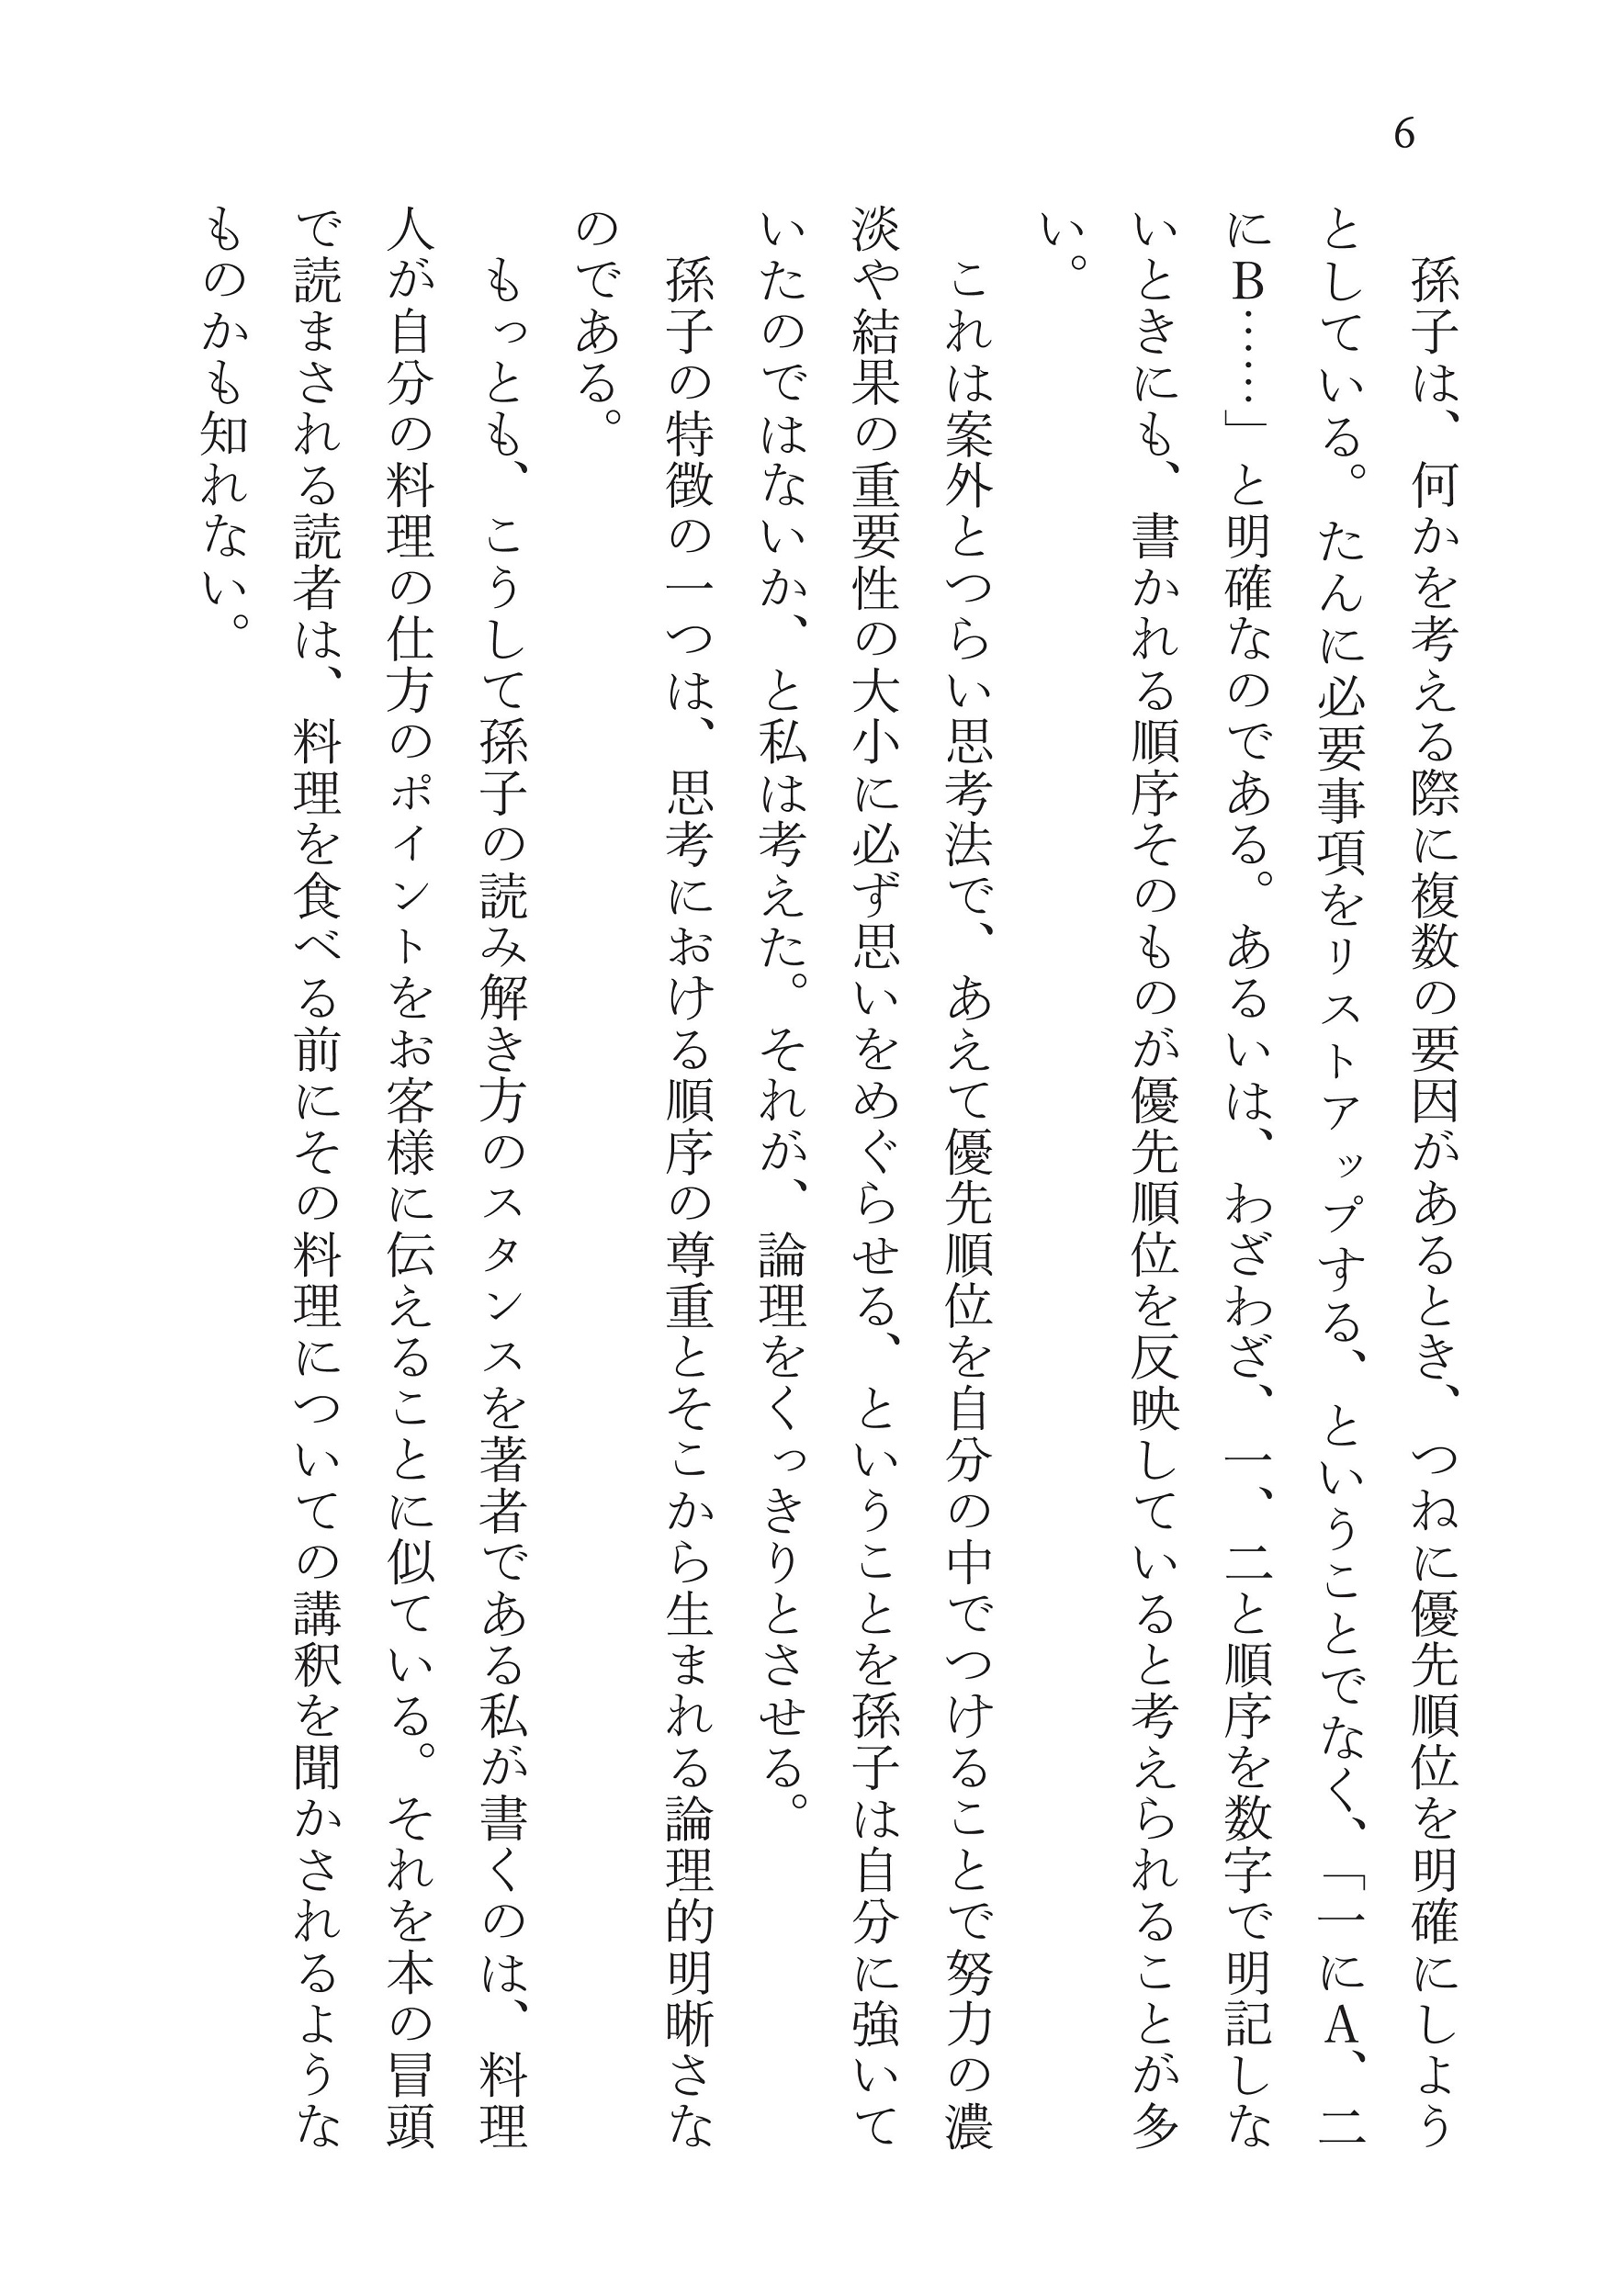 6
孫子は、何かを考える際に複数の要因があるとき、つねに優先順位を明確にしよう
としている。たんに必要事項をリストアップする、ということでなく、「一にA、二
にB……」と明確なのである。あるいは、わざわざ、一、二と順序を数字で明記しな
いときにも、書かれる順序そのものが優先順位を反映していると考えられることが多
い。
これは案外とつらい思考法で、あえて優先順位を自分の中でつけることで努力の濃
淡や結果の重要性の大小に必ず思いをめぐらせる、ということを孫子は自分に強いて
いたのではないか、と私は考えた。それが、論理をくっきりとさせる。
孫子の特徴の一つは、思考における順序の尊重とそこから生まれる論理的明晰さな
のである。
もっとも、こうして孫子の読み解き方のスタンスを著者である私が書くのは、料理
人が自分の料理の仕方のポイントをお客様に伝えることに似ている。それを本の冒頭
で読まされる読者は、料理を食べる前にその料理についての講釈を聞かされるような
ものかも知れない。